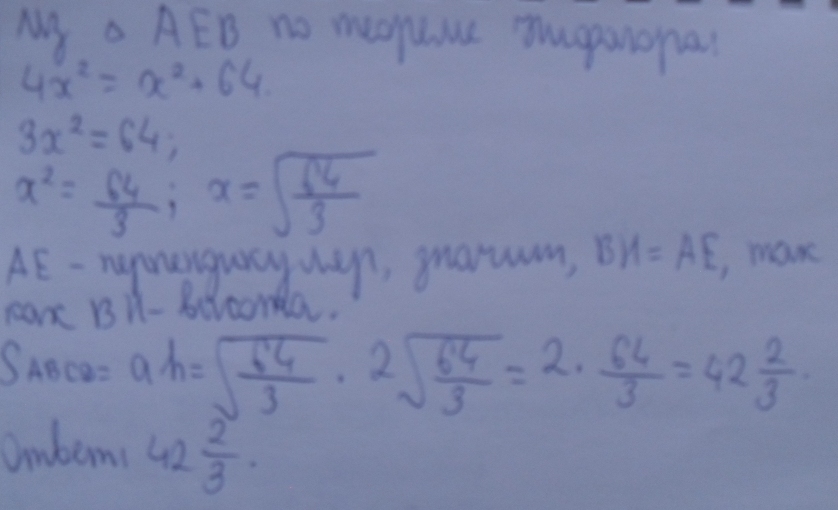 Из △ AEB по теореме Пифагора:
4x² = x² + 64.
3x² = 64;
x² = 64/3; x = √(64/3)
AE - перпендикуляр, значит, BH = AE, так
как BH - высота.
SABCD = ah = √(64/3) · 2√(64/3) = 2 · 64/3 = 42 2/3.
Ответ: 42 2/3.